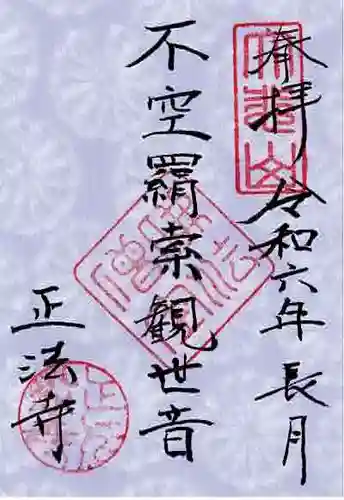 奉拝 令和六年 長月
不空羂索観世音
正法寺